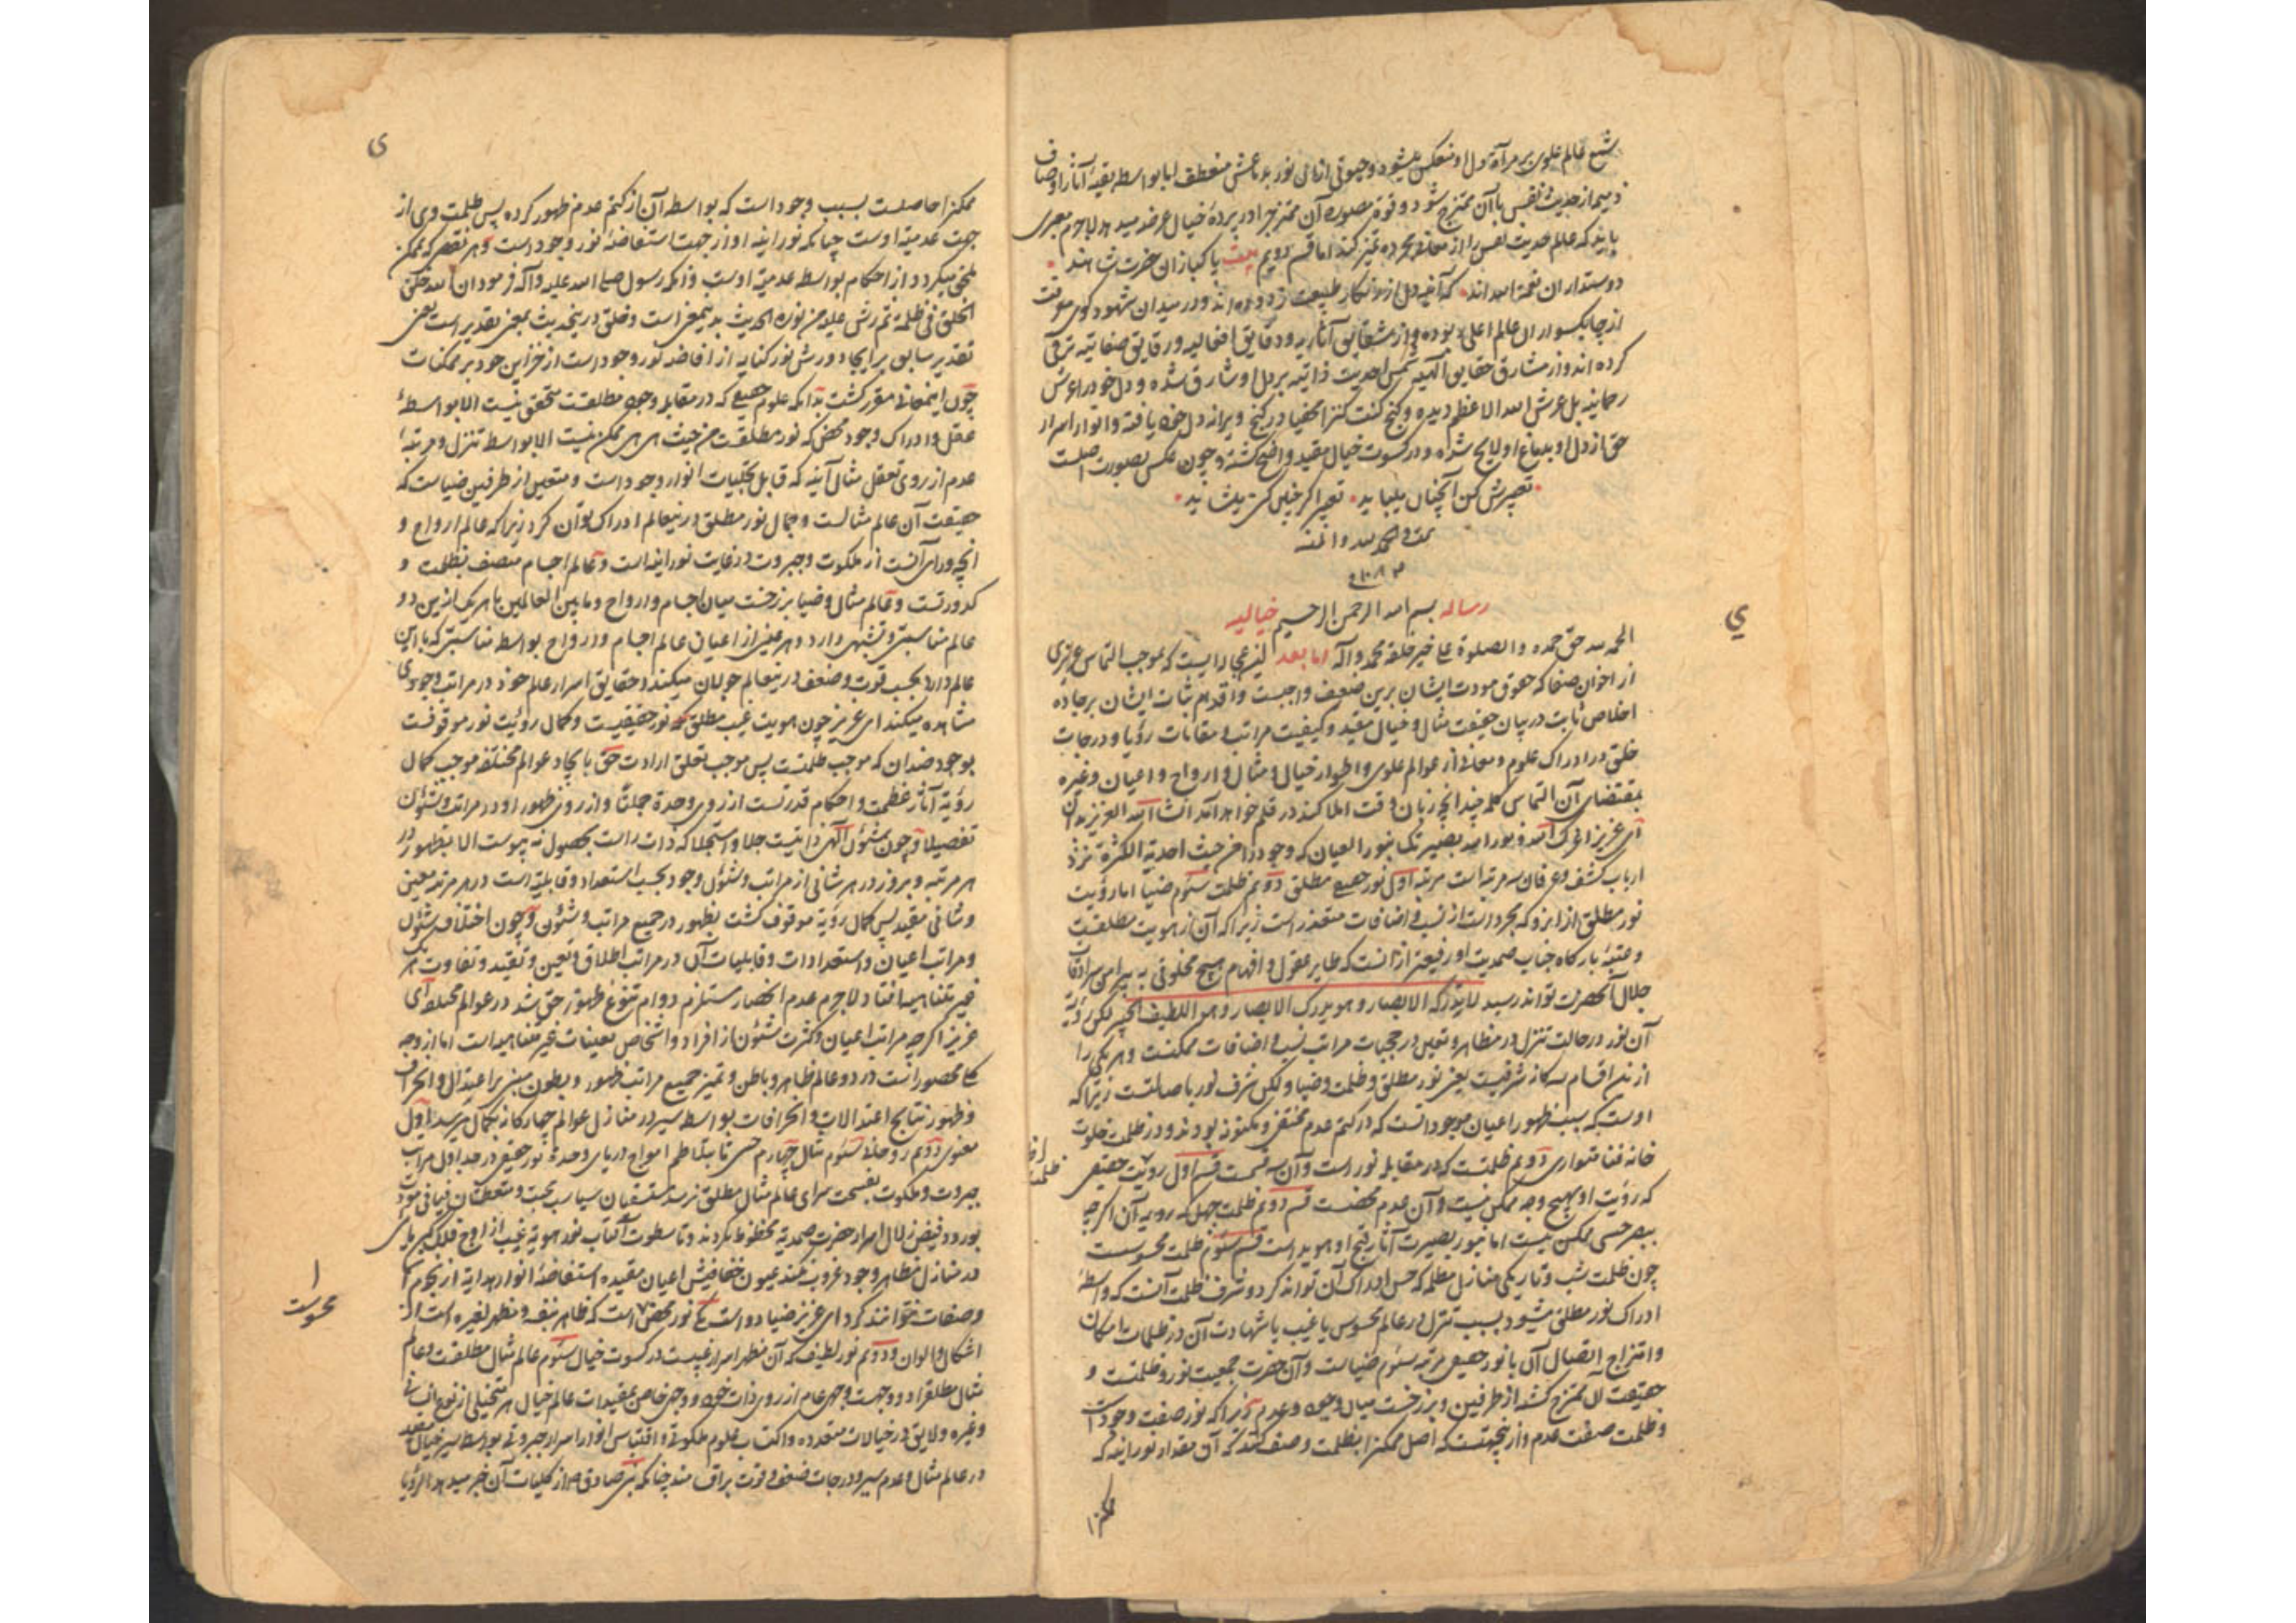 شبح عالم علوی بر مرآة دل او منعکس میشود و چون از آن نور بدماغش منعطف اما بواسطه بقیه آثار اوصاف
ذمیمه از حدیث نفس با آن ممتزج شود و قوة مصوره آن ممتزج را در پرده خیال عرضه میدهد لاجرم معبری
باید که عالم حدیث نفس را از معانی مجرده تمیز کند اما قسم دویم بیت پاکبازان حضرت شاهند
دوستداران نعمة اللهند که آینه دل از زنگار طبیعت زدوده اند و در میدان شهود کوی سبقت
از چابکسواران عالم اعلی ربوده و از شقایق آثاریه و دقایق افعالیه و رقایق صفاتیه ترقی
کرده اند و از مشارق حقایق الهیه شمس احدیت ذاتیه بر دل او شارق شده و دل خود را عرش
رحمانیه بل عرش الله الاعظم دیده و کنج کنت کنزا مخفیا در کنج ویرانه دل خود یافته و انوار اسرار
حق از دل او بدماغ او لایح شده و در کسوت خیال مقید واضح گشته و چون عکس بصورت اصلست
تعبیرش کن آنچنان میباید تعبیر اگر خیال کنی شاید
تمت و الحمد لله و المنه
رساله بسم الله الرحمن الرحیم خیالیه
الحمد لله حق حمده والصلوة علی خیر خلقه محمد وآله اما بعد این عجاله ایست که بموجب التماس عزیزی
از اخوان صفا که حقوق مودت ایشان برین ضعیف واجبست و اقدام ثبات ایشان بر جاده
اخلاص ثابت در بیان حقیقت مثال و خیال مقید و کیفیت مراتب و مقامات رؤیا و درجات
خلق در ادراک علوم و معانی از عوالم علوی و اطوار خیال و مثال و ارواح و اعیان و غیره
بمقتضای آن التماس کلمه چند آنچه زبان وقت املا کند در قلم خواهد آمد انشاء الله العزیز بدان
ای عزیز اعزک الله و نور الله بصیرتک بنور العیان که وجود از من حیث احدیة الکثرة نزد
ارباب کشف و عرفان سه مرتبه است مرتبه اول نور حقیقی مطلق دویم ظلمت سیوم ضیا اما رؤیت
نور مطلق از آنرو که مجرد است از نسب و اضافات متعذر است زیرا که آن از هویت مطلقست
و عتبه بارگاه جناب صمدیت او رفیعتر از آنست که طایر عقول و افهام هیچ مخلوقی به پیرامن سرادقات
جلال آنحضرت تواند رسید لا یدرکه الابصار و هو یدرک الابصار و هو اللطیف الخبیر لکن رؤیة
آن نور در حالت تنزل در مظاهر و تعین در حجبات مراتب نسب و اضافات ممکنست و هر یکی را
ازین اقسام سه گانه شرفیست یعنی نور مطلق و ظلمت و ضیا و لیکن شرف نور باصالتست زیرا که
اوست که سبب ظهور اعیان موجوداتست که در کتم عدم مختفی و مکنونه بودند و در ظلمت خلوت
خانه فنا متواری دویم ظلمتست که در مقابله نور است و آن سه قسمست قسم اول رویت حقیقی
که رؤیت او بهیچ وجه ممکن نیست و آن عدم محضست قسم دویم ظلمت جهل که رویه آن اگر چه
ببصر حسی ممکن نیست اما بنور بصیرت آثار قبح او هویداست قسم سیوم ظلمت محسوسست
چون ظلمت شب و تاریکی منازل مظلمه که حس ادراک آن تواند کرد و شرف ظلمت آنست که واسطه
ادراک نور مطلق میشود بسبب تنزل در عالم محسوس یا غیب یا شهادت آن در ظلمات امکان
و امتزاج اتصال آن با نور حقیقی مرتبه سیوم ضیاست و آن حضرت جمعیت نور و ظلمتست و
حقیقت آن ممتزج گشته از طرفین و برزخست میان وجود و عدم زیرا که نور صفت وجود است
و ظلمت صفت عدم و ازینجهتست که اصل ممکن را بظلمت وصف کنند که آن مقدار نورانیة که
ممکنرا
ی
ممکنرا حاصلست بسبب وجود است که بواسطه آن از کتم عدم ظهور کرده پس ظلمت وی از
جهت عدمیة اوست چنانکه نورانیة او از جهت استفاضه نور وجود است و هر نقص که بممکن
ملحق میگردد از احکام بواسطه عدمیة اوست و آنکه رسول صلی الله علیه وآله فرمود ان الله خلق
الخلق فی ظلمة ثم رش علیهم من نوره الحدیث بدین معنی است و خلق درین حدیث بمعنی تقدیر است یعنی
تقدیر سابق بر ایجاد و رش نور کنایه از افاضه نور وجود است از خزاین جود بر ممکنات
چون اینمعانی مقرر گشت بدانکه علوم حقیقی که در مقابله وجود مطلقست متحقق نیست الا بواسطه
عقل و ادراک وجود محض که نور مطلقست من حیث هی هی ممکن نیست الا بواسطه تنزل و مرتبه
عدم از روی تعقل مثال آینه که قابل تجلیات انوار وجود است و متعین از طرفین ضیاست که
حقیقت آن عالم مثالست و جمال نور مطلق درینعالم ادراک توان کرد زیرا که عالم ارواح و
آنچه ورای آنست از ملکوت و جبروت در غایت نورانیه است و عالم اجسام متصف بظلمت و
کدورتست و عالم مثال و ضیا برزخست میان اجسام و ارواح و ما بین العالمین با هر یک ازین دو
عالم مناسبتی و تشبهی دارد و هر عینی از اعیان عالم اجسام و ارواح بواسطه مناسبتی که با این
عالم دارد بحسب قوت و ضعف درینعالم جولان میکند و حقایق اسرار عالم خود در مراتب وجودی
مشاهده میکند ای عزیز چون هویت غیب مطلق که نور حقیقیست و کمال رؤیت نور موقوفست
بوجود ضد آن که موجب ظلمتست پس موجب تعلق ارادت حق بایجاد عوالم مختلفه موجب کمال
رؤیة آثار عظمت و احکام قدرتست از روی وحدة جملتا و از روی ظهور او در مراتب و شئون
تفصیلا و چون شئون الهی ذاتیست جلا و استجلا که ذات راست بحصول نه پیوست الا بظهور در
هر مرتبه و بروز در هر شانی از مراتب و شئون وجود بحسب استعداد و قابلیة است در هر مرتبه معین
و شانی مقید پس کمال رؤیة موقوف گشت بظهور در جمیع مراتب و شئون و چون اختلاف شئون
و مراتب اعیان و استعدادات و قابلیات آن در مراتب اطلاق و تعین و تقید و تفاوت هر یک
غیر متناهی افتاد لاجرم عدم انحصار مستلزم دوام تنوع ظهور حق شد در عوالم مختلفه ای
عزیز اگر چه مراتب اعیان و کثرت شئون از افراد و اشخاص تعینات غیر متناهیه است اما از وجه
کلی محصور است در دو عالم ظاهر و باطن و تمیز جمیع مراتب ظهور و بطون مبنی بر اعتدال و انحراف
و ظهور نتایج اعتدالات و انحرافات بواسطه سیر در منازل عوالم چهار گانه بکمال میرسد اول
معنوی دویم روحانی سیوم مثال چهارم حسی تا بتلاطم امواج دریای وحدة نور حقیقی در جداول مراتب
جبروت و ملکوت بفسحت سرای عالم مثال مطلق نرسد مستسقیان سباسب محبت و متعطشان فیافی مودت
بورود فیض زلال اسرار حضرت صمدیة محظوظ نگردند و تا سطوت آفتاب نور هویة غیب از اوج فلک کبریای
در منازل مظاهر وجود غروب نکند عیون خفافیش اعیان مقیده استفاضه انوار هدایة از نجوم اسما
و صفات نتوانند کرد ای عزیز ضیا دو است یکی نور محض است که ظاهر بنفسه و مظهر لغیره است از
اشکال و الوان و دویم نور لطیف که آن مظهر اسرار غیبست در کسوت خیال سیوم عالم مثال مطلقست و عالم
مثال مطلق را دو وجهست وجهی عام از روی ذات خود و وجهی خاص بمقیدات عالم خیال هر متخیلی از نوع انسانی
و غیره و لایق در خیالات متعدده و اکتساب علوم ملکوتی و اقتباس انوار اسرار جبروتی بواسطه سیر خیال مقید
در عالم مثال و عدم سیر و درجات ضعف و قوت براق مند چنانکه نبی صادق ص از کلیات آن خبر میدهد الرؤیا
محسوست
ی